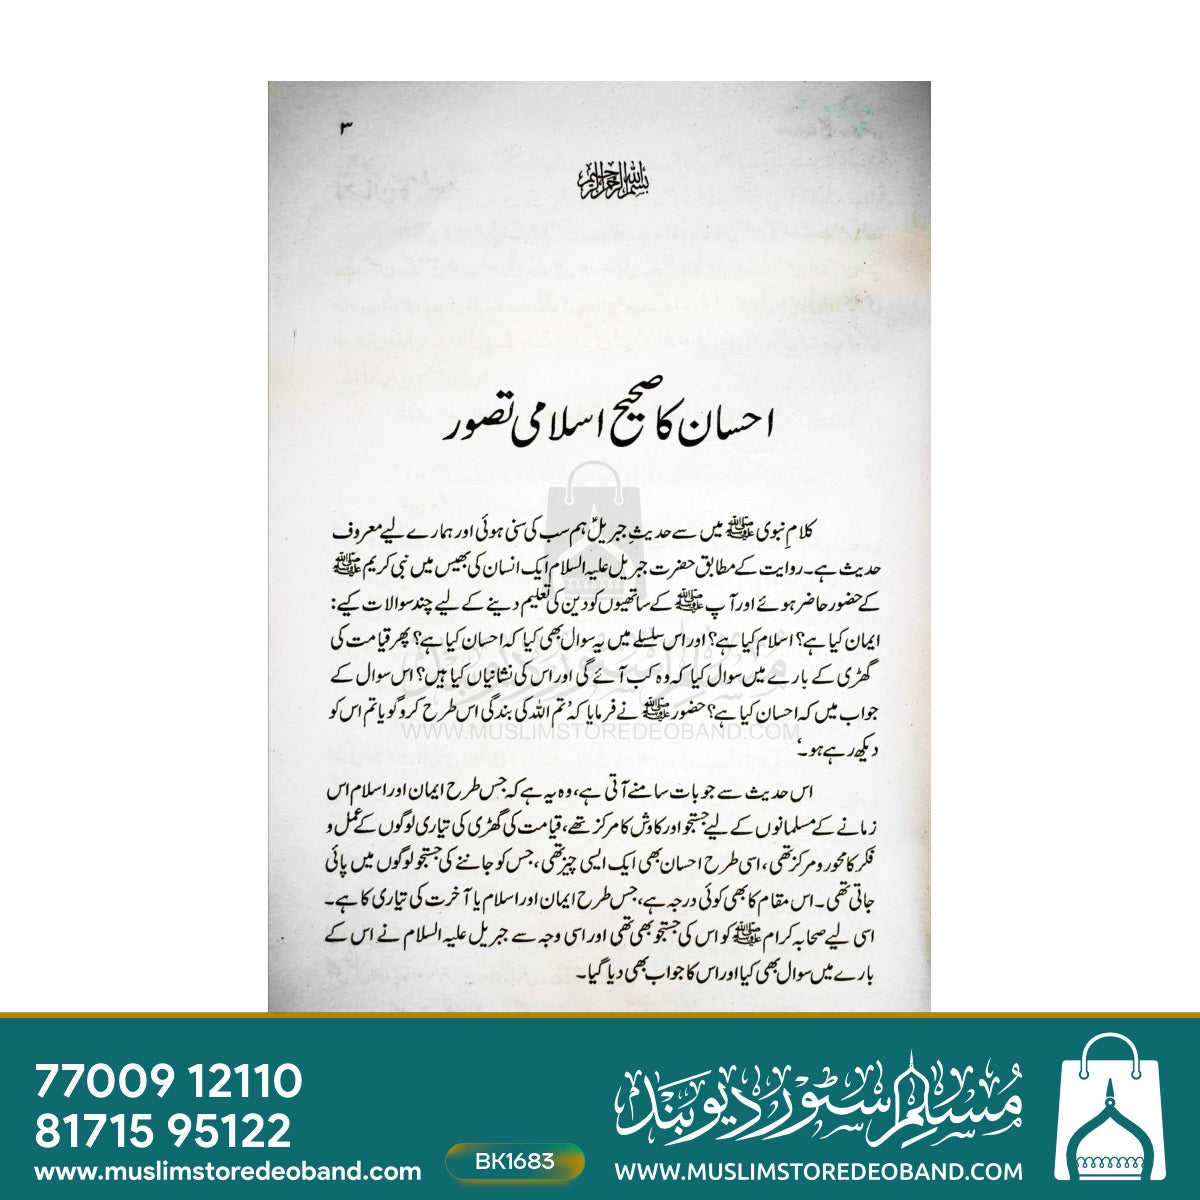 ۳
بسم اللہ الرحمن الرحیم
احسان کا صحیح اسلامی تصور
کلامِ نبوی ﷺ میں سے حدیثِ جبریلؑ ہم سب کی سنی ہوئی اور ہمارے لیے معروف
حدیث ہے۔ روایت کے مطابق حضرت جبریل علیہ السلام ایک انسان کی بھیس میں نبی کریم ﷺ
کے حضور حاضر ہوئے اور آپ ﷺ کے ساتھیوں کو دین کی تعلیم دینے کے لیے چند سوالات کیے:
ایمان کیا ہے؟ اسلام کیا ہے؟ اور اس سلسلے میں یہ سوال بھی کیا کہ احسان کیا ہے؟ پھر قیامت کی
گھڑی کے بارے میں سوال کیا کہ وہ کب آئے گی اور اس کی نشانیاں کیا ہیں؟ اس سوال کے
جواب میں کہ احسان کیا ہے؟ حضور ﷺ نے فرمایا کہ 'تم اللہ کی بندگی اس طرح کرو گویا تم اس کو
دیکھ رہے ہو۔'
اس حدیث سے جو بات سامنے آتی ہے، وہ یہ ہے کہ جس طرح ایمان اور اسلام اس
زمانے کے مسلمانوں کے لیے جستجو اور کاوش کا مرکز تھے، قیامت کی گھڑی کی تیاری لوگوں کے عمل و
فکر کا محور و مرکز تھی، اسی طرح احسان بھی ایک ایسی چیز تھی، جس کو جاننے کی جستجو لوگوں میں پائی
جاتی تھی۔ اس مقام کا بھی کوئی درجہ ہے، جس طرح ایمان اور اسلام یا آخرت کی تیاری کا ہے۔
اسی لیے صحابہ کرام ﷺ کو اس کی جستجو بھی تھی اور اسی وجہ سے جبریل علیہ السلام نے اس کے
بارے میں سوال بھی کیا اور اس کا جواب بھی دیا گیا۔
مسلم سٹور دیوبند
WWW.MUSLIMSTOREDEOBAND.COM
77009 12110
81715 95122
www.muslimstoredeoband.com
BK1683
مُسلم سٹور دیوبند
WWW.MUSLIMSTOREDEOBAND.COM